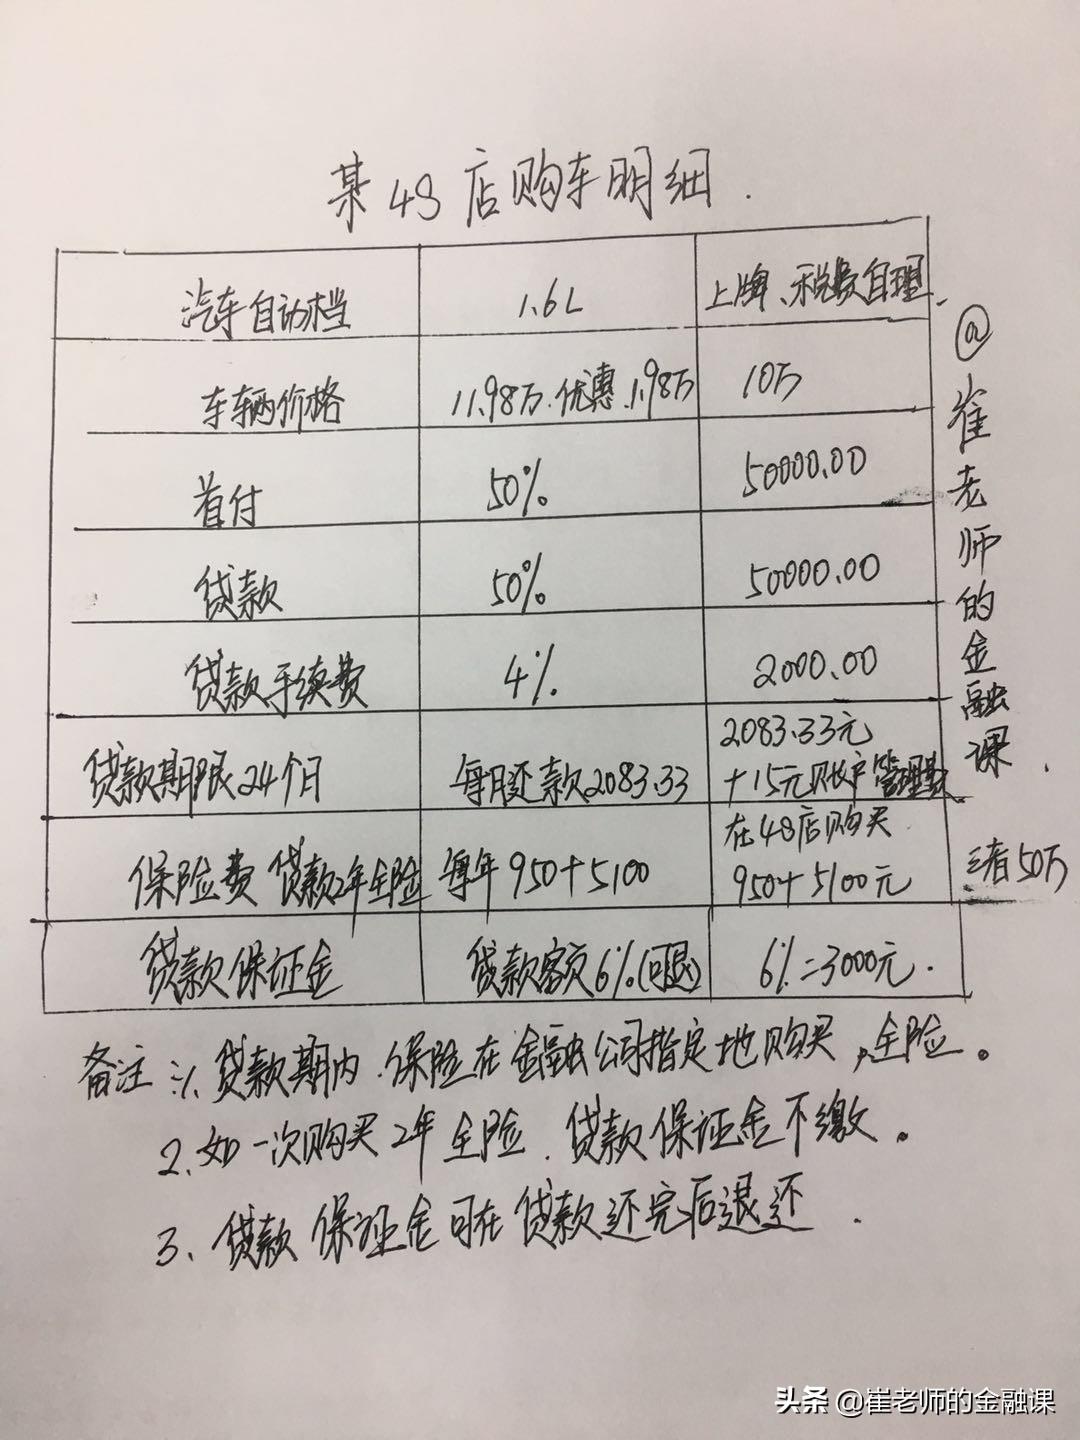 某4S店购车明细.
汽车自动档 1.6L 上牌、税费自理.
车辆价格 11.98万.优惠.1.98万 10万
首付 50% 50000.00
贷款 50% 50000.00
贷款手续费 4% 2000.00
贷款期限24个月 每月还款2083.33 2083.33元
+15元账户管理费
保险费 贷款2年全险 每年950+5100 在4S店购买
950+5100元
三者50万
贷款保证金 贷款额6%(可退) 6%=3000元.
@崔老师的金融课.
备注:1.贷款期内.保险在金融公司指定地购买,全险。
2.如一次购买2年全险.贷款保证金不缴。
3.贷款保证金可在贷款还完后退还.
头条 @崔老师的金融课